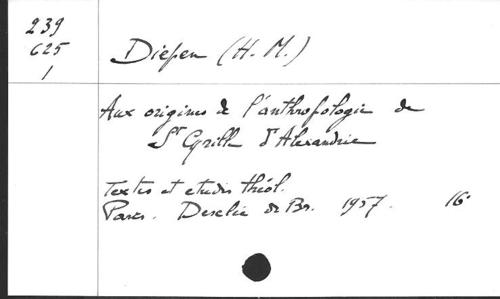 239
625
1
Diepen (H. M.)
Aux origines de l'anthropologie de
St Cyrille d'Alexandrie
Textes et etudes théol.
Paris. Desclée de Br. 1957. 16°